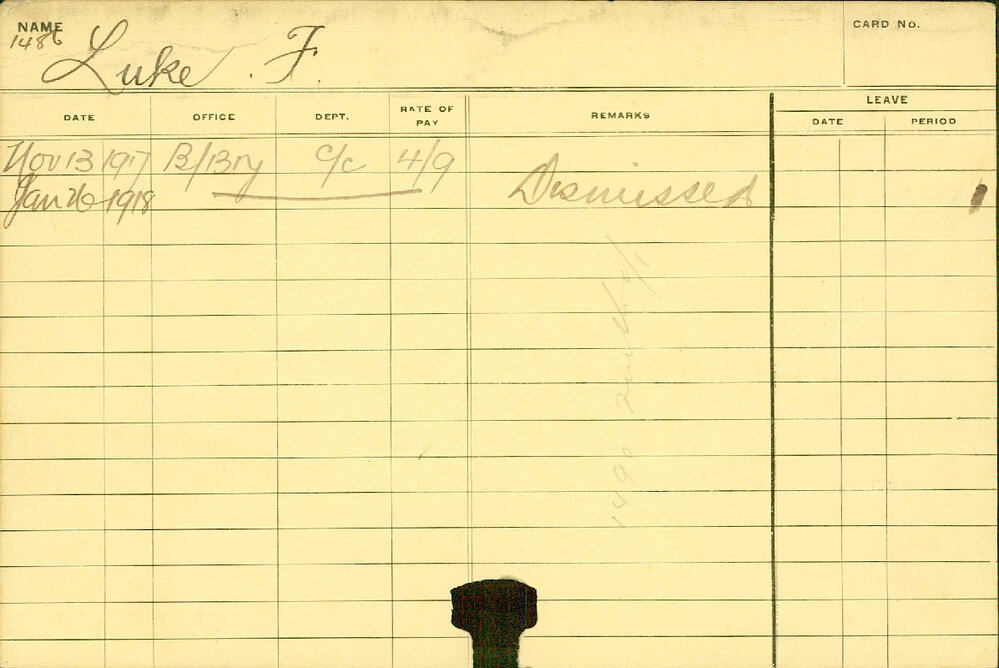 NAME
CARD No.
1486
Luke . F.
LEAVE
DATE OFFICE DEPT. RATE OF PAY REMARKS DATE PERIOD
Nov 13 1917 B/Bry C/c 4/9
Jan 26 1918 Dismissed